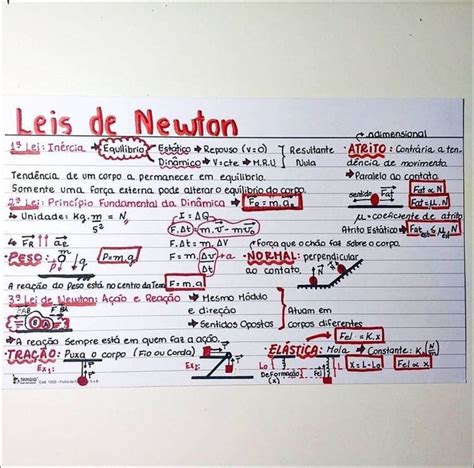 Leis de Newton
1ª Lei: Inércia → Equilíbrio → Estático → Repouso (v=0) Resultante Nula
Dinâmico → V=cte → M.R.U
Tendência de um corpo a permanecer em equilíbrio.
Somente uma força externa pode alterar o equilíbrio do corpo.
2ª Lei: Princípio Fundamental da Dinâmica → FR = m.a
↳ Unidade: Kg.m/s² = N
I = ΔQ
F.Δt = m.v - mv₀
F.Δt = m.ΔV
F = m.Δv/Δt → a
F = m.a
PESO: P=m.g
A reação do Peso está no centro da Terra
3ª Lei de Newton: Ação e Reação → Mesmo Módulo e direção
→ Sentidos Opostos
Atuam em corpos diferentes
→ A reação Sempre está em quem faz a ação.
TRAÇÃO: Puxa o corpo (Fio ou Corda)
Ex1:
Ex2:
adimensional
ATRITO: Contrária a tendência de movimento.
→ Paralelo ao contato
sentido
Fat
Fat α N
Fat = μ.N
μ = coeficiente de atrito
Atrito Estático → Fat est ≤ μe.N
Força que o chão faz sobre o corpo.
NORMAL: perpendicular ao contato.
Fel = K.x
ELÁSTICA: Mola → Constante: K (N/m)
Deformação (x)
Lo
Fel
L
X = L - Lo
Fel α x